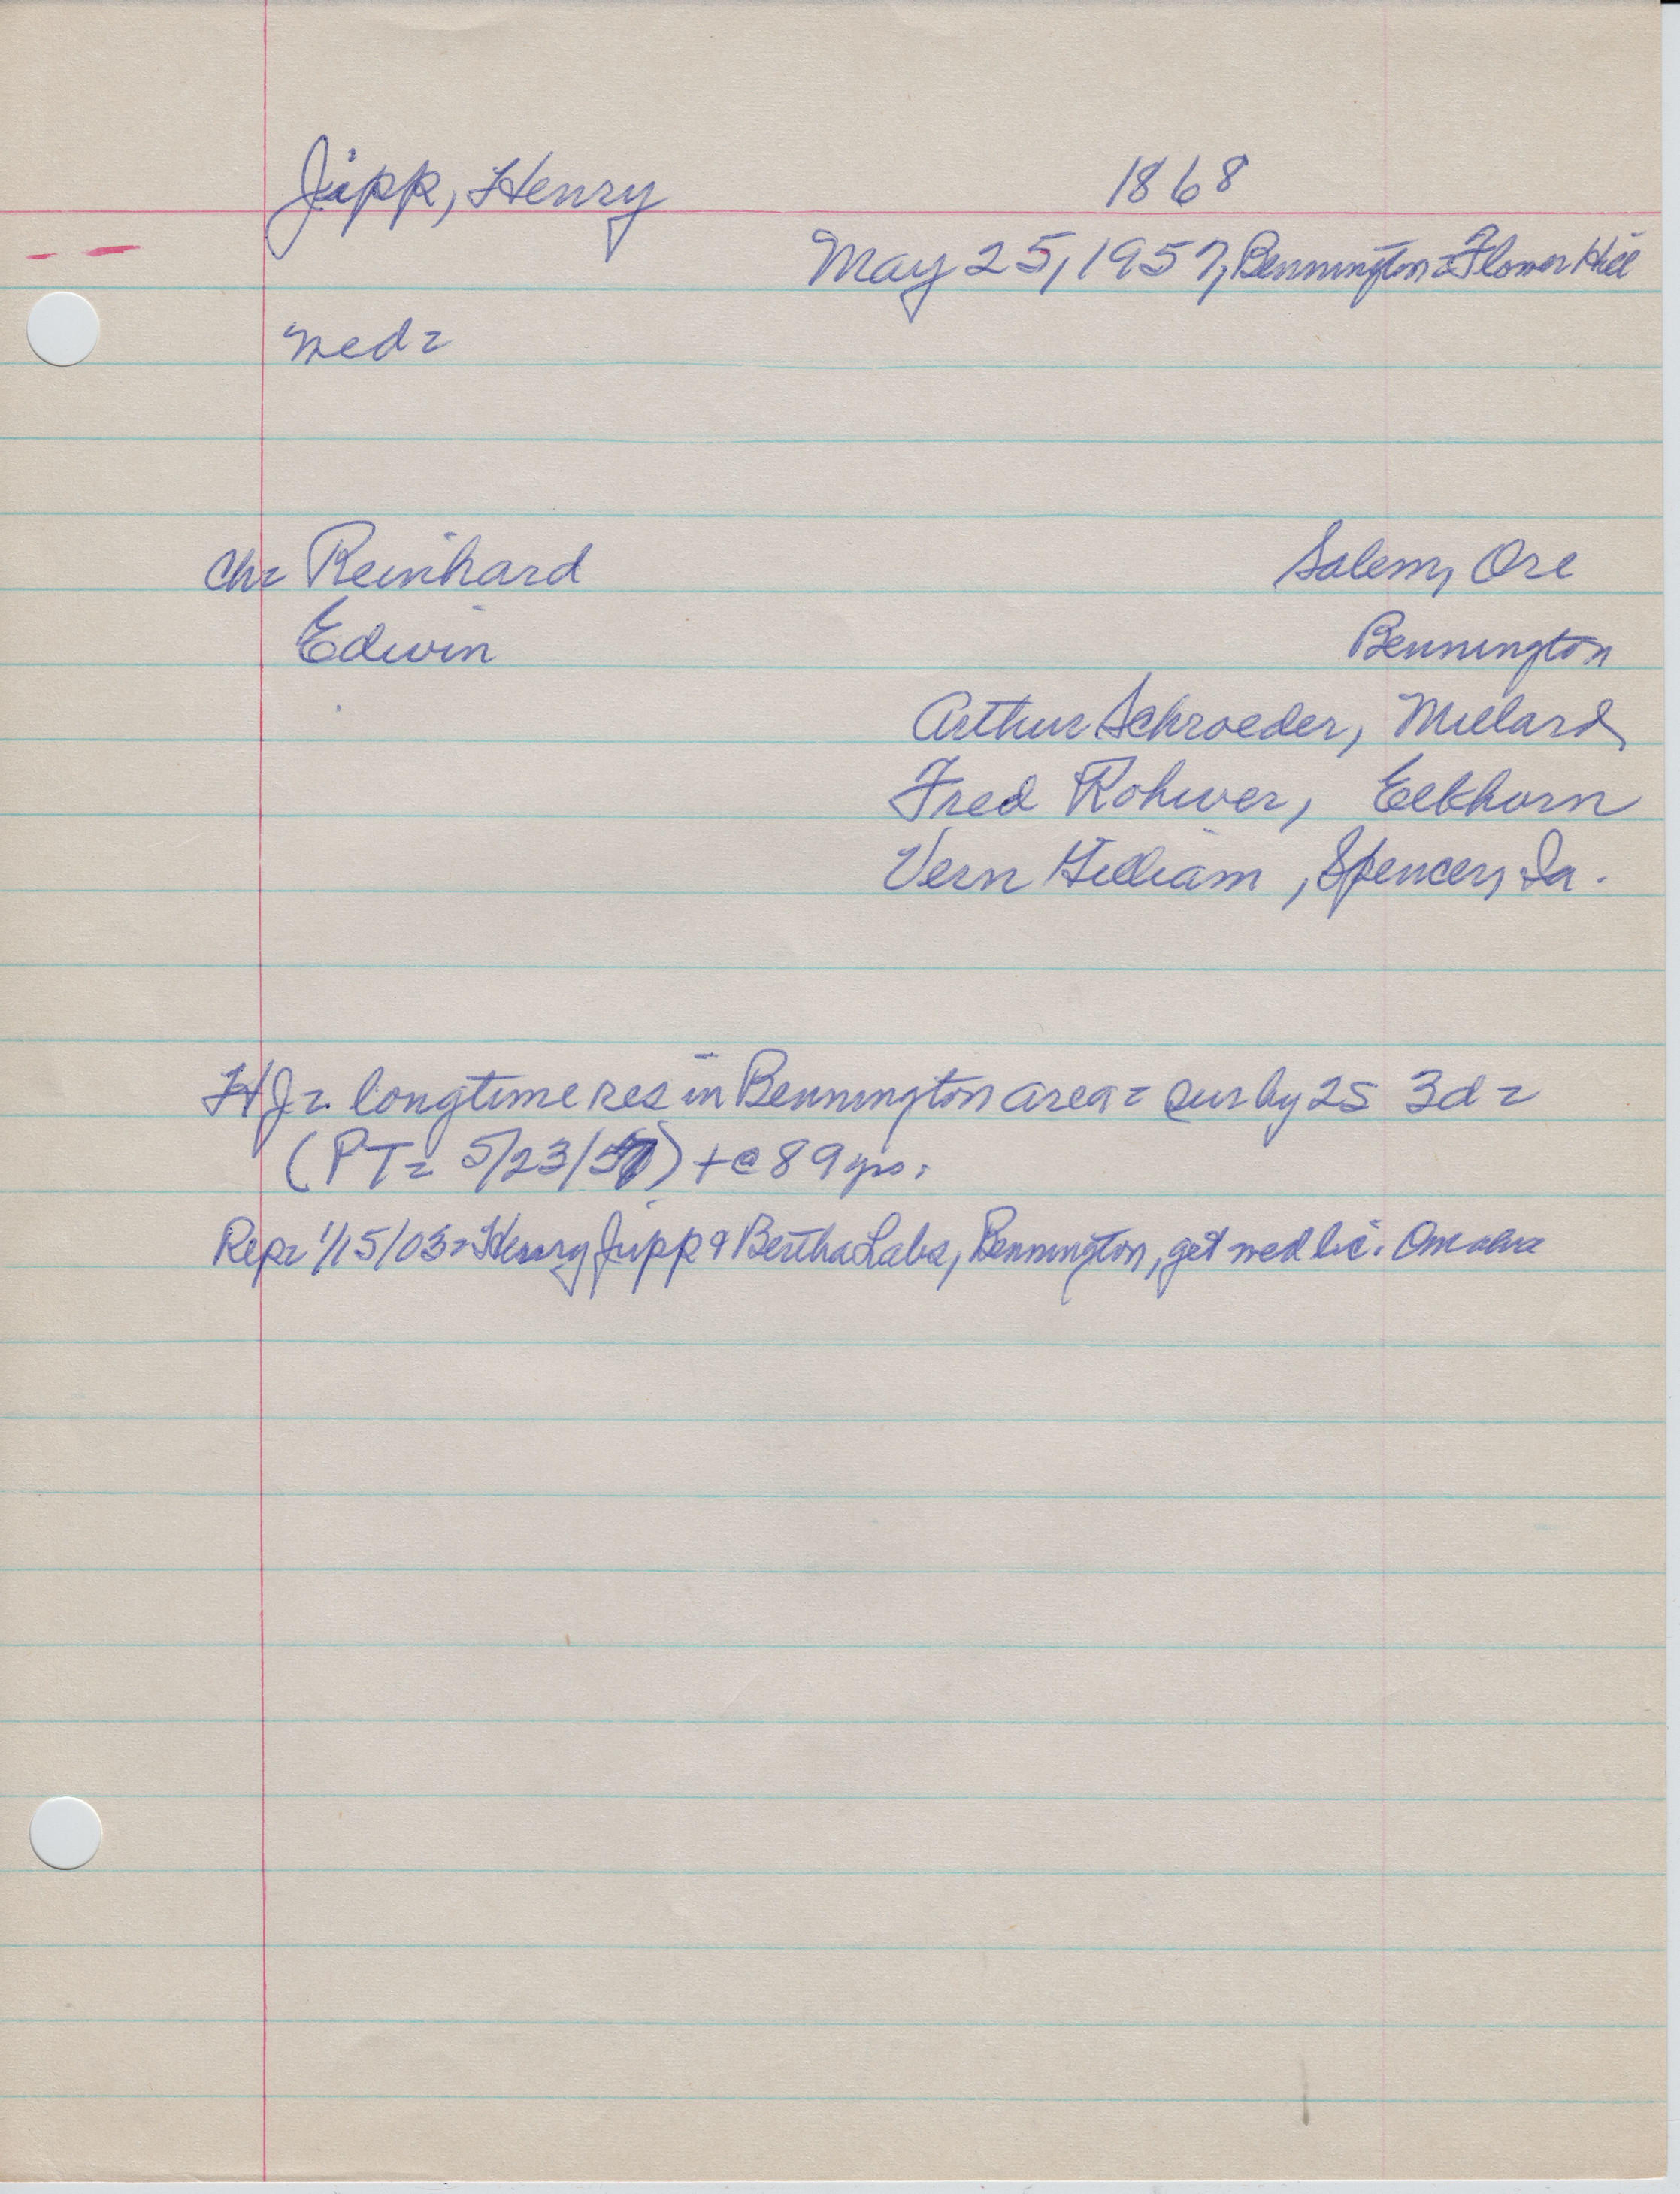 Jipp, Henry 1868
May 25, 1957, Bennington = Flower Hill
wed =
Ch = Reinhard Salem, Ore
Edwin Bennington
Arthur Schroeder, Millard
Fred Rohwer, Elkhorn
Vern Gilliam, Spencer, Ia.
HJ = longtime res in Bennington area = sur by 2s 3d =
(PT = 5/23/57) + @ 89 yrs.
Rep = 1/15/03 = Henry Jipp & Bertha Labs, Bennington, get wed lic. Omaha